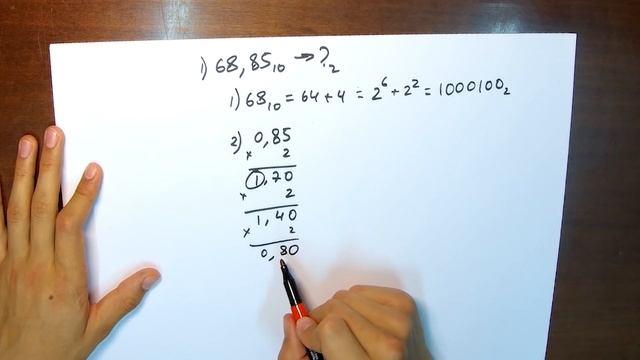 1) 68,85₁₀ → ?₂
1) 68₁₀ = 64 + 4 = 2⁶ + 2² = 1000100₂
2) 0,85
× 2
1,70
× 2
1,40
× 2
0,80